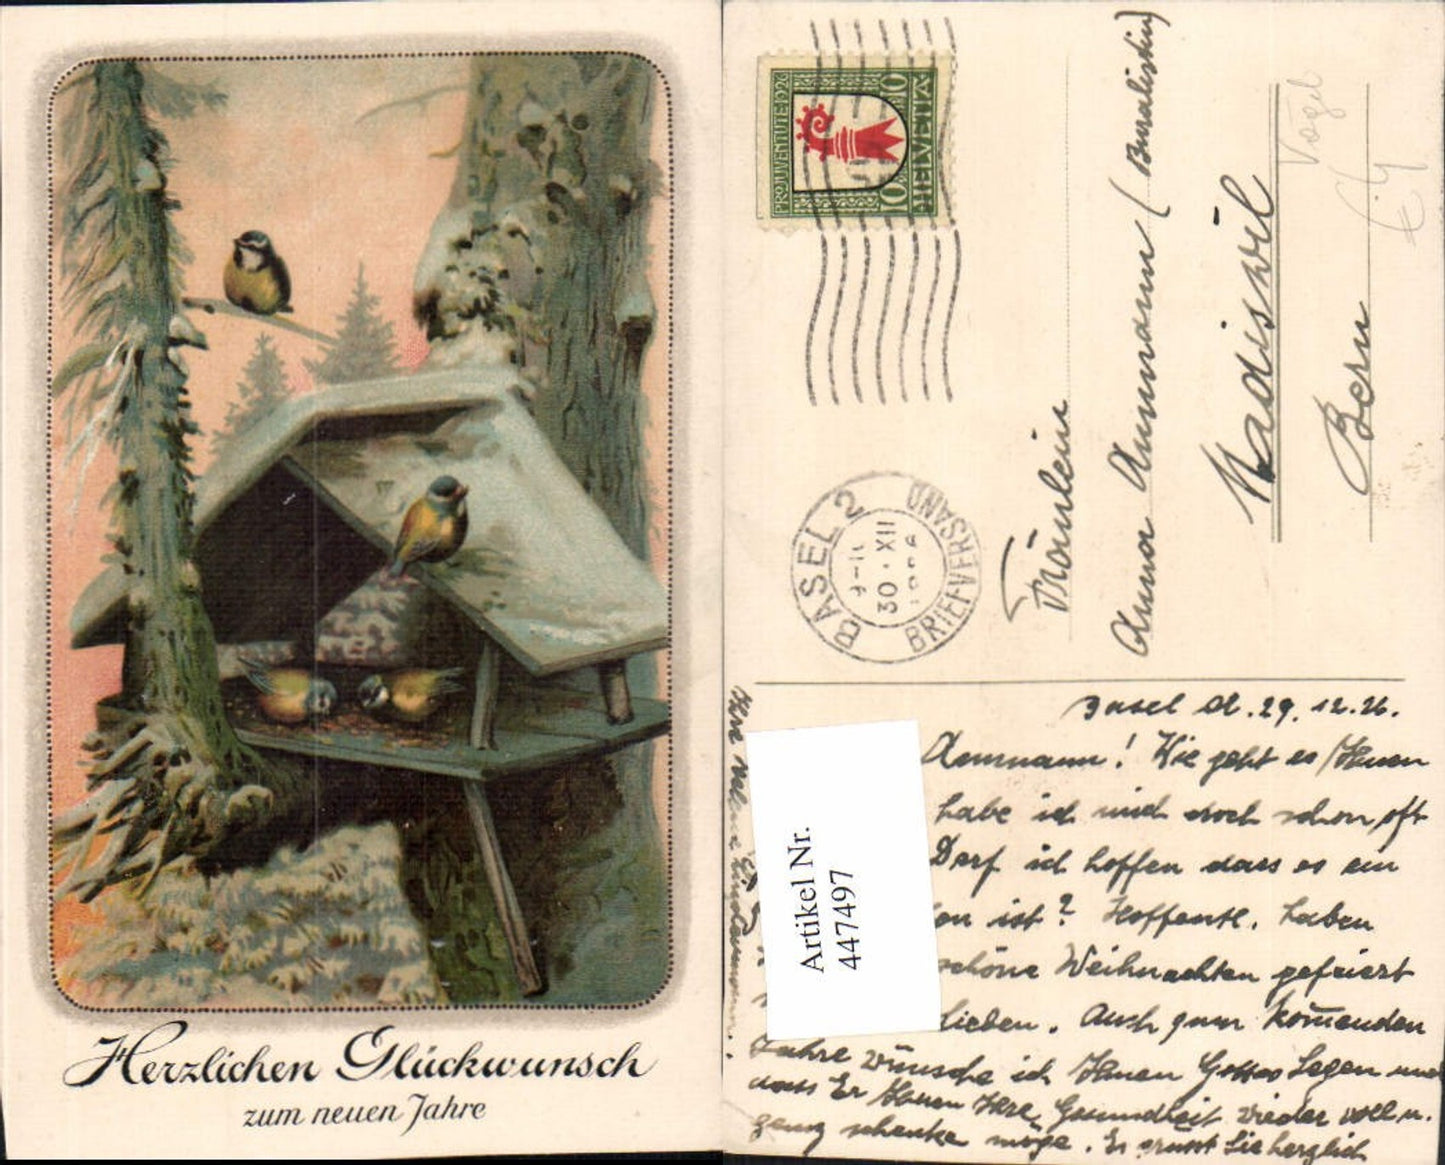 Herzlichen Glückwunsch
zum neuen Jahre
PRO JUVENTUTE 1926
10 10
HELVETIA
BASEL 2
BRIEFVERSAND
30.XII
Fräulein
Anna Ammann (Buralistin)
Madiswil
Bern
Vogel
Artikel Nr.
447497
Basel d. 29. 12. 26.
Ammann! Wie geht es Ihnen
habe ich mich doch schon oft
Darf ich hoffen dass es ein
ist? Hoffentl. haben
schöne Weihnachten gefeiert
Lieben. Auch zum kommenden
Jahre wünsche ich Ihnen Gottes Segen und
dass Er Ihnen Ihre Gesundheit wieder voll u.
ganz schenke möge. Es grüsst Sie herzlich
Ihre